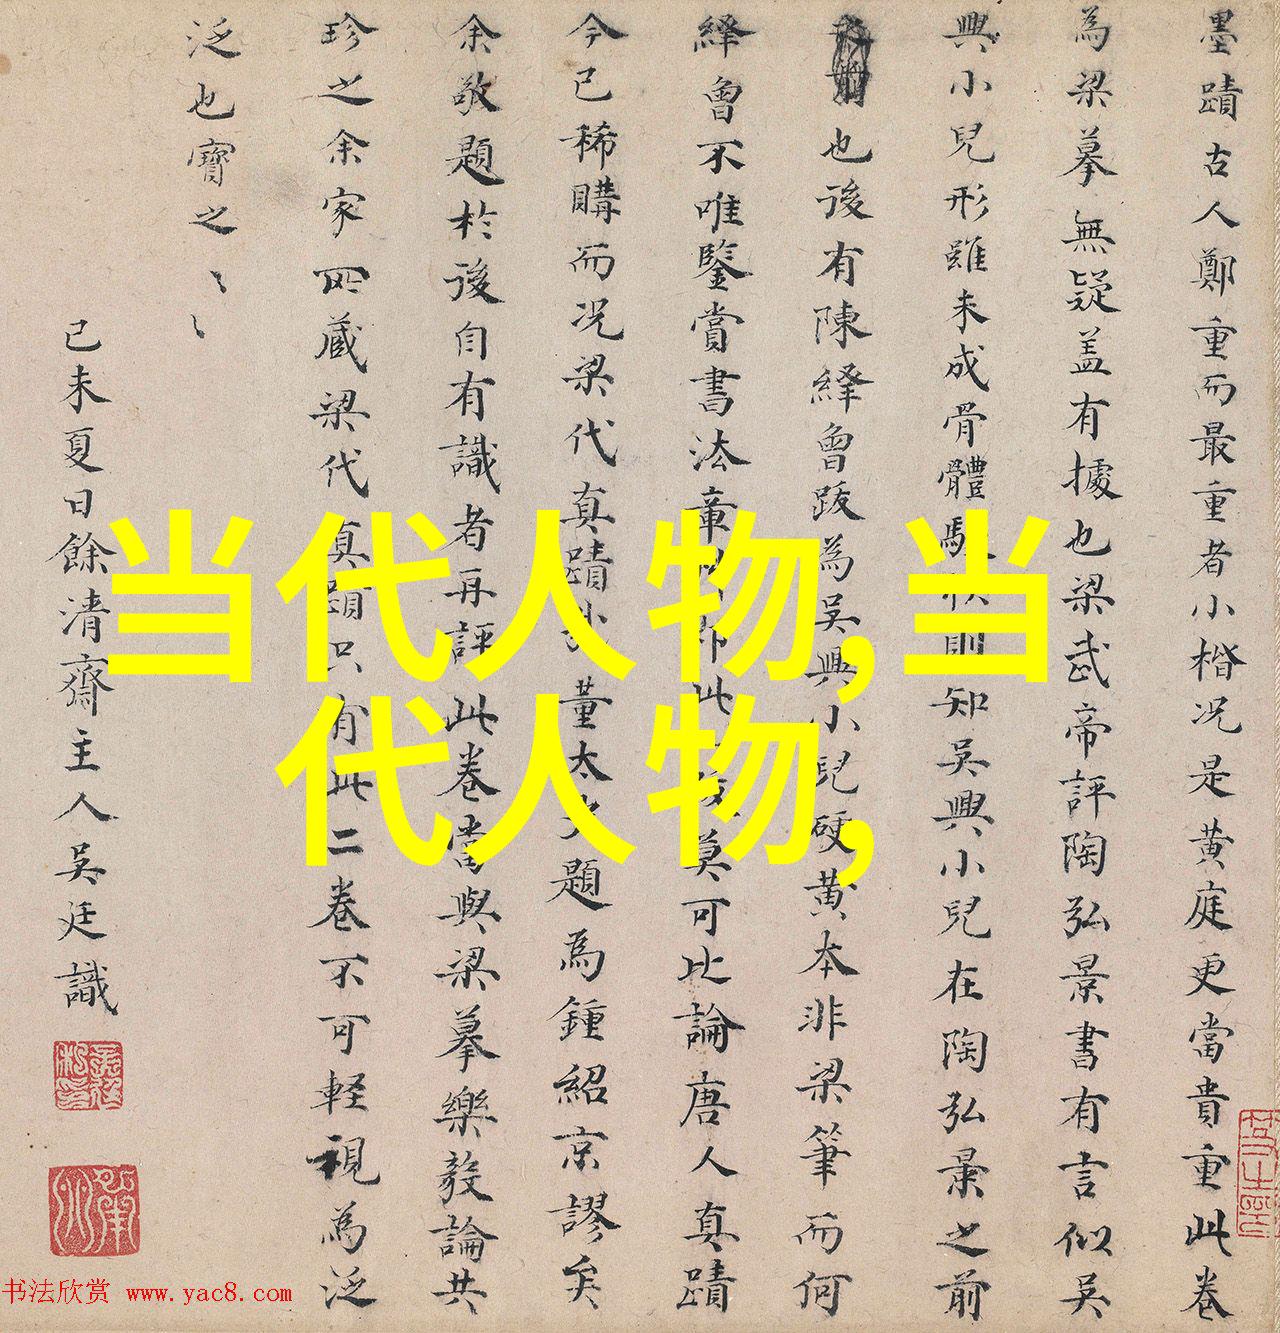 墨蹟古人鄭重而最重者小楷况是黄庭更當貴重此卷
為梁摹無疑盖有據也梁武帝評陶弘景書有言似吴
興小兒形雖未成骨體則知吴興小兒在陶弘景之前
也後有陳繹曾跋為吴興小兒硬黄本非梁筆而何
繹曾不唯鑒賞書法章此莫可比論唐人真蹟
今已稀購而况梁代真蹟董太史題為鍾紹京謬矣
余敬題於後自有識者再評此卷當與梁摹樂毅論共
珍之余家所蔵梁代真蹟只有此二卷不可軽視為泛
泛也寳之〻〻
己未夏日餘清齋主人吴廷識
当代人物,当
代人物,
书法欣赏 www.yac8.com